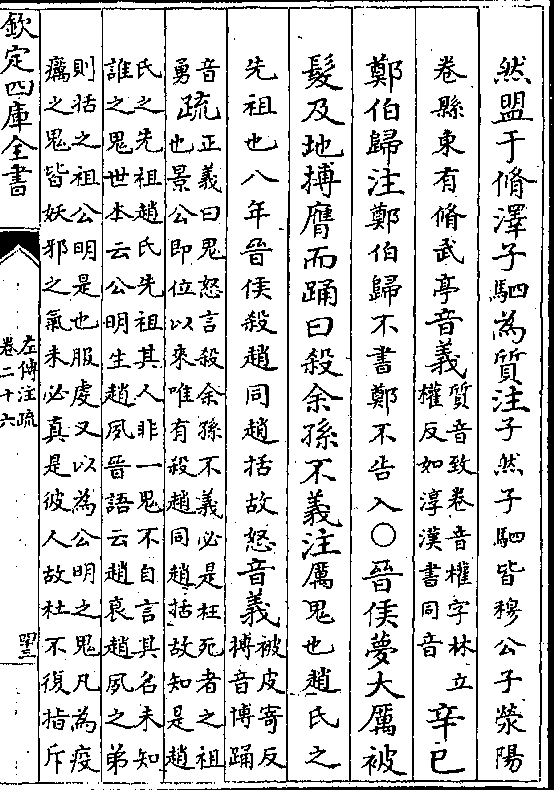 然盟于脩澤子駟為質注子然子駟皆穆公子滎陽
卷縣東有脩武亭音義質音致卷音權字林立
權反如淳漢書同音辛巳
鄭伯歸注鄭伯歸不書鄭不告入○晉侯夢大厲被
髮及地搏膺而踊曰殺余孫不義注厲鬼也趙氏之
先祖也八年晉侯殺趙同趙括故怒音義被皮寄反
搏音博踊
音
勇疏正義曰鬼怒言殺余孫不義必是枉死者之祖
也景公即位以來唯有殺趙同趙括故知是趙
氏之先祖趙氏先祖其人非一鬼不自言其名未知
誰之鬼世本云公明生趙夙晉語云趙衰趙夙之弟
則括之祖公明是也服虔又以為公明之鬼凡為疫
癘之鬼皆妖邪之氣未必真是彼人故杜不復指斥
欽定四庫全書
左傳注疏
卷二十六